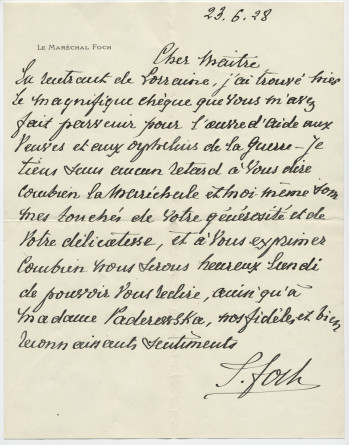 23.6.28
LE MARÉCHAL FOCH
Cher Maître
En rentrant de Lorraine, j'ai trouvé hier
le magnifique chèque que vous m'avez
fait parvenir pour l'œuvre d'aide aux
Veuves et aux orphelins de la guerre - Je
tiens sans aucun retard à vous dire
combien la Maréchale et moi même som
mes touchés de votre générosité et de
votre délicatesse, et à vous exprimer
combien nous serons heureux lundi
de pouvoir vous redire, ainsi qu'à
madame Paderewska, nos fidèles et bien
reconnaissants sentiments
F. Foch